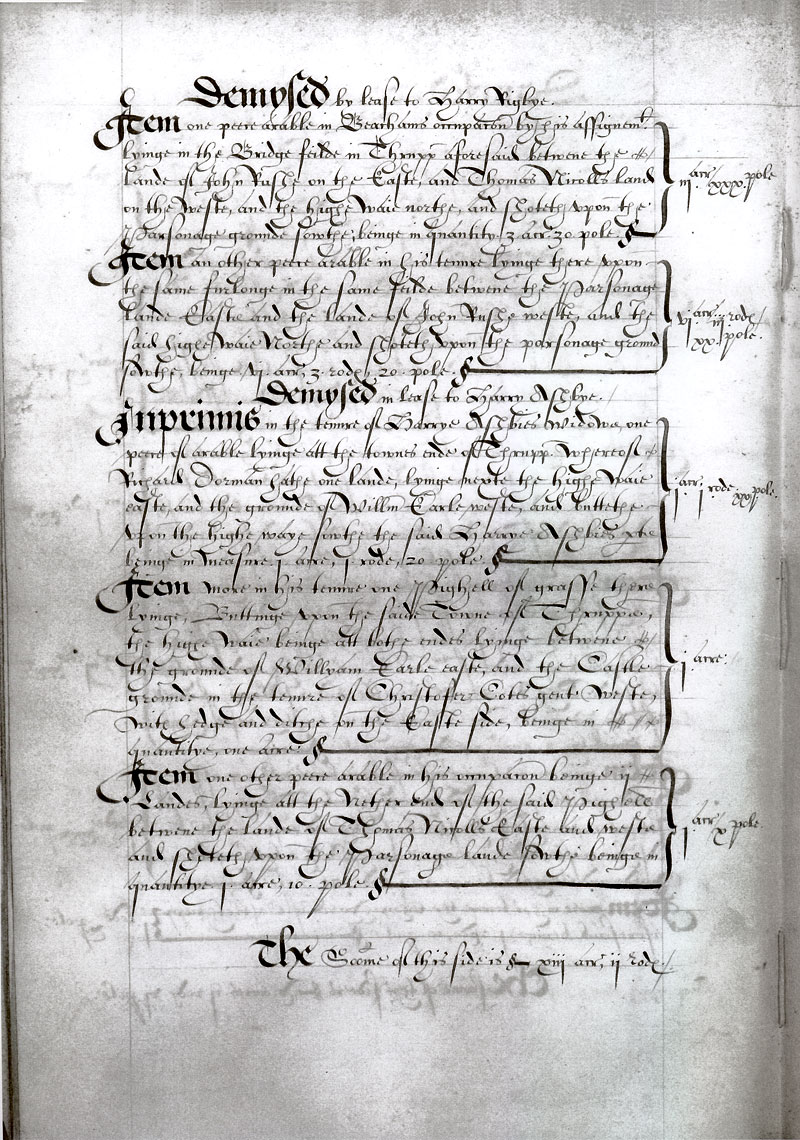 Demysed by lease to Harry Rigbye.
Item one peece arable in Beachams occupacōn by his assignemt
lyinge in the Bridge feilde in Thrupp aforesaid betwene the
Lande of John Rushe on the Easte, and Thomas Nicolls land
on the weste, and the highe waie northe, and shoteth vpon the
Parsonage grounde sowthe, beinge in quantity 3 acr, 30 pole
iij acr xxx pole
Item an other peece arable in his tenure lyinge there vpon
the same furlonge in the same feilde betwene the Parsonage
Lande Easte and the lande of John Rushe weste, and the
said highe waie Northe and shoteth vpon the parsonage ground
sowthe, beinge, vj acr, 3 rodℯ, 20 pole
vj acr iij rodℯ
xx pole.
Demysed in lease to Harry Ashbye.
Inprimis in the tenure of Harrye Ashbies widowe, one
peece of arable lyinge att the townes ende of Thrupp whereof
Richard Dorman hathe one lande, lyinge nexte the highe waie
easte, and the grounde of Willm Earle weste, and butteth
vpon the highe waye sowthe the said Harrye Ashbies
beinge in measure j acre, j rode, 20 pole
j acr j rode xx pole
Item more in his tenure one Pighell of grasse there
lyinge, Buttinge vpon the saide Towne of Thruppe,
the highe waie beinge att bothe endes lyinge betwene
the grounde of Willyam Earle easte, and the Castle
grounde in the tenure of Christofer Cotes gent weste,
with hedge and ditche on the Easte side, beinge in
quantitye, one acre.
j acre.
Item one other peece arable in his occupacōn beinge ij
Landes, lyinge att the Nether end of the said Pighell
betwene the lande of Thomas Nicolls Easte and weste
and shoteth vpon the Parsonage lande sowthe beinge in
quantitye j acre, 10 pole
j acr x pole
The Some of this side is xiij acr, ij rodℯ